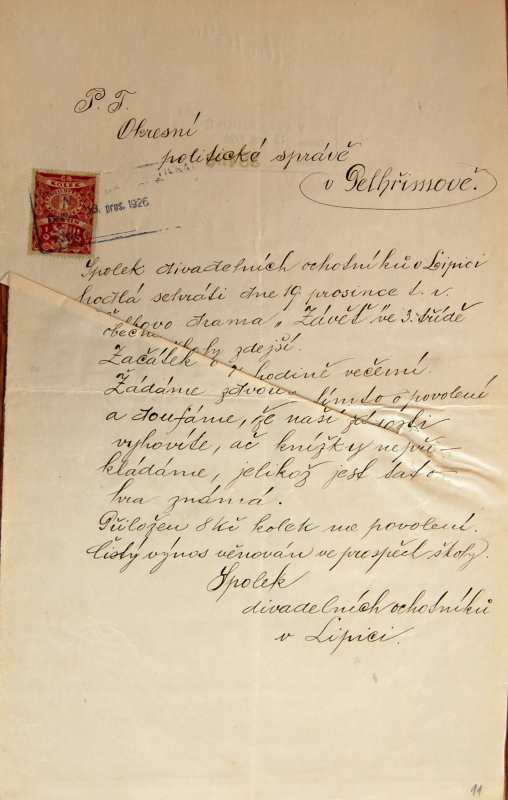 P. T.
Okresní
politické správě
v Pelhřimově.
KOLEK
13. pros. 1926
Spolek divadelních ochotníků v Lipici
hodlá sehráti dne 19. prosince t. r.
drama „Závěť" ve 3. třídě
školy zdejší.
Začátek o 7 hodině večerní.
Žádáme zdvou tímto o povolení
a doufáme, že naší žádosti
vyhovíte, ač knížky nepři-
kládáme, jelikož jest tato
hra známá.
Přiložen 8 Kč kolek na povolení.
Čistý výnos věnován ve prospěch školy.
Spolek
divadelních ochotníků
v Lipici.
11